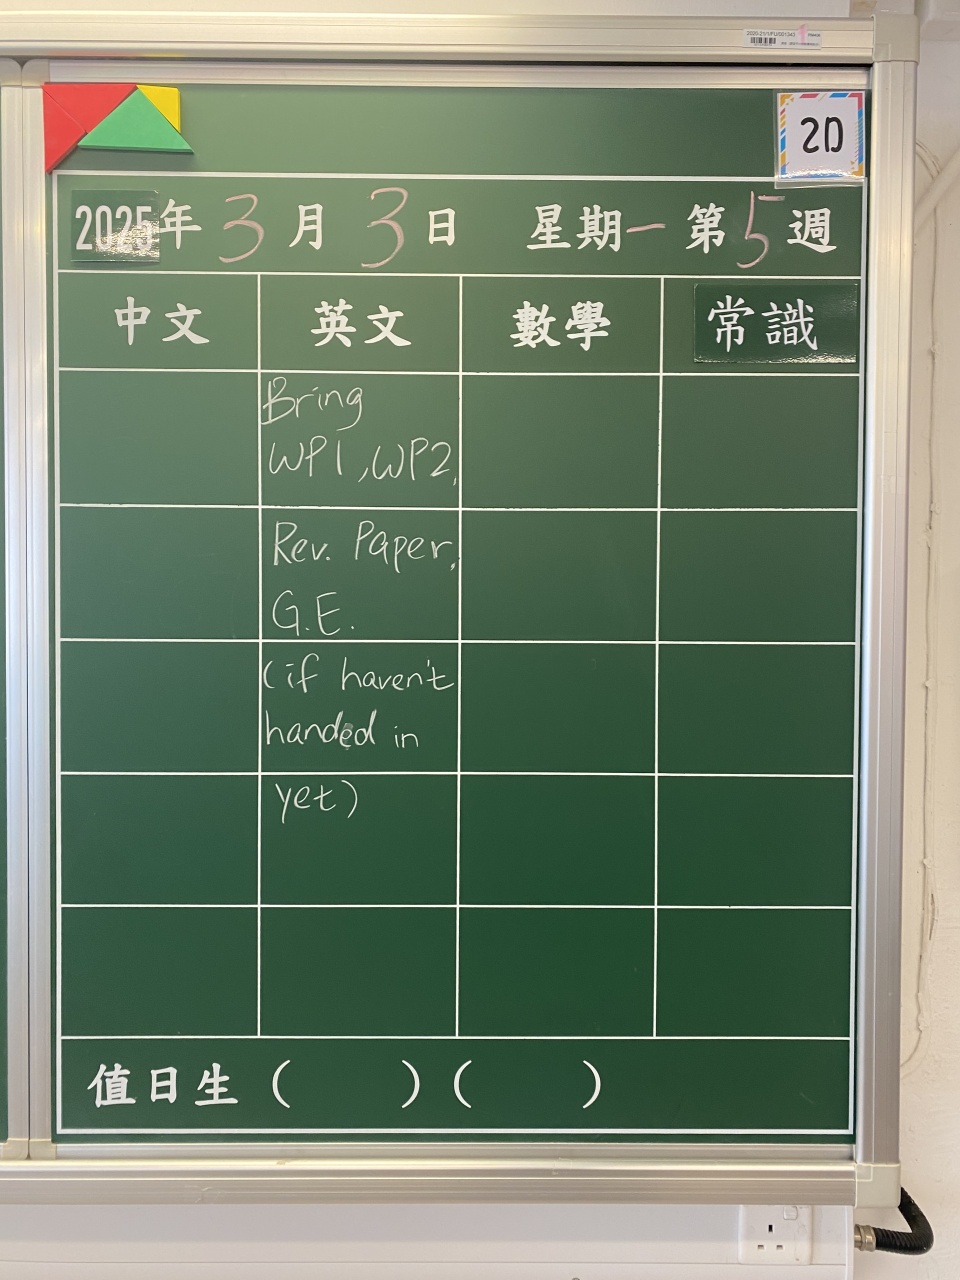 2020-21/1/FU/001343
2D
2025年3月3日 星期一 第5週
中文 英文 數學 常識
Bring
WP1, WP2,
Rev. Paper,
G.E.
(if haven't
handed in
yet)
值日生 ( ) ( )